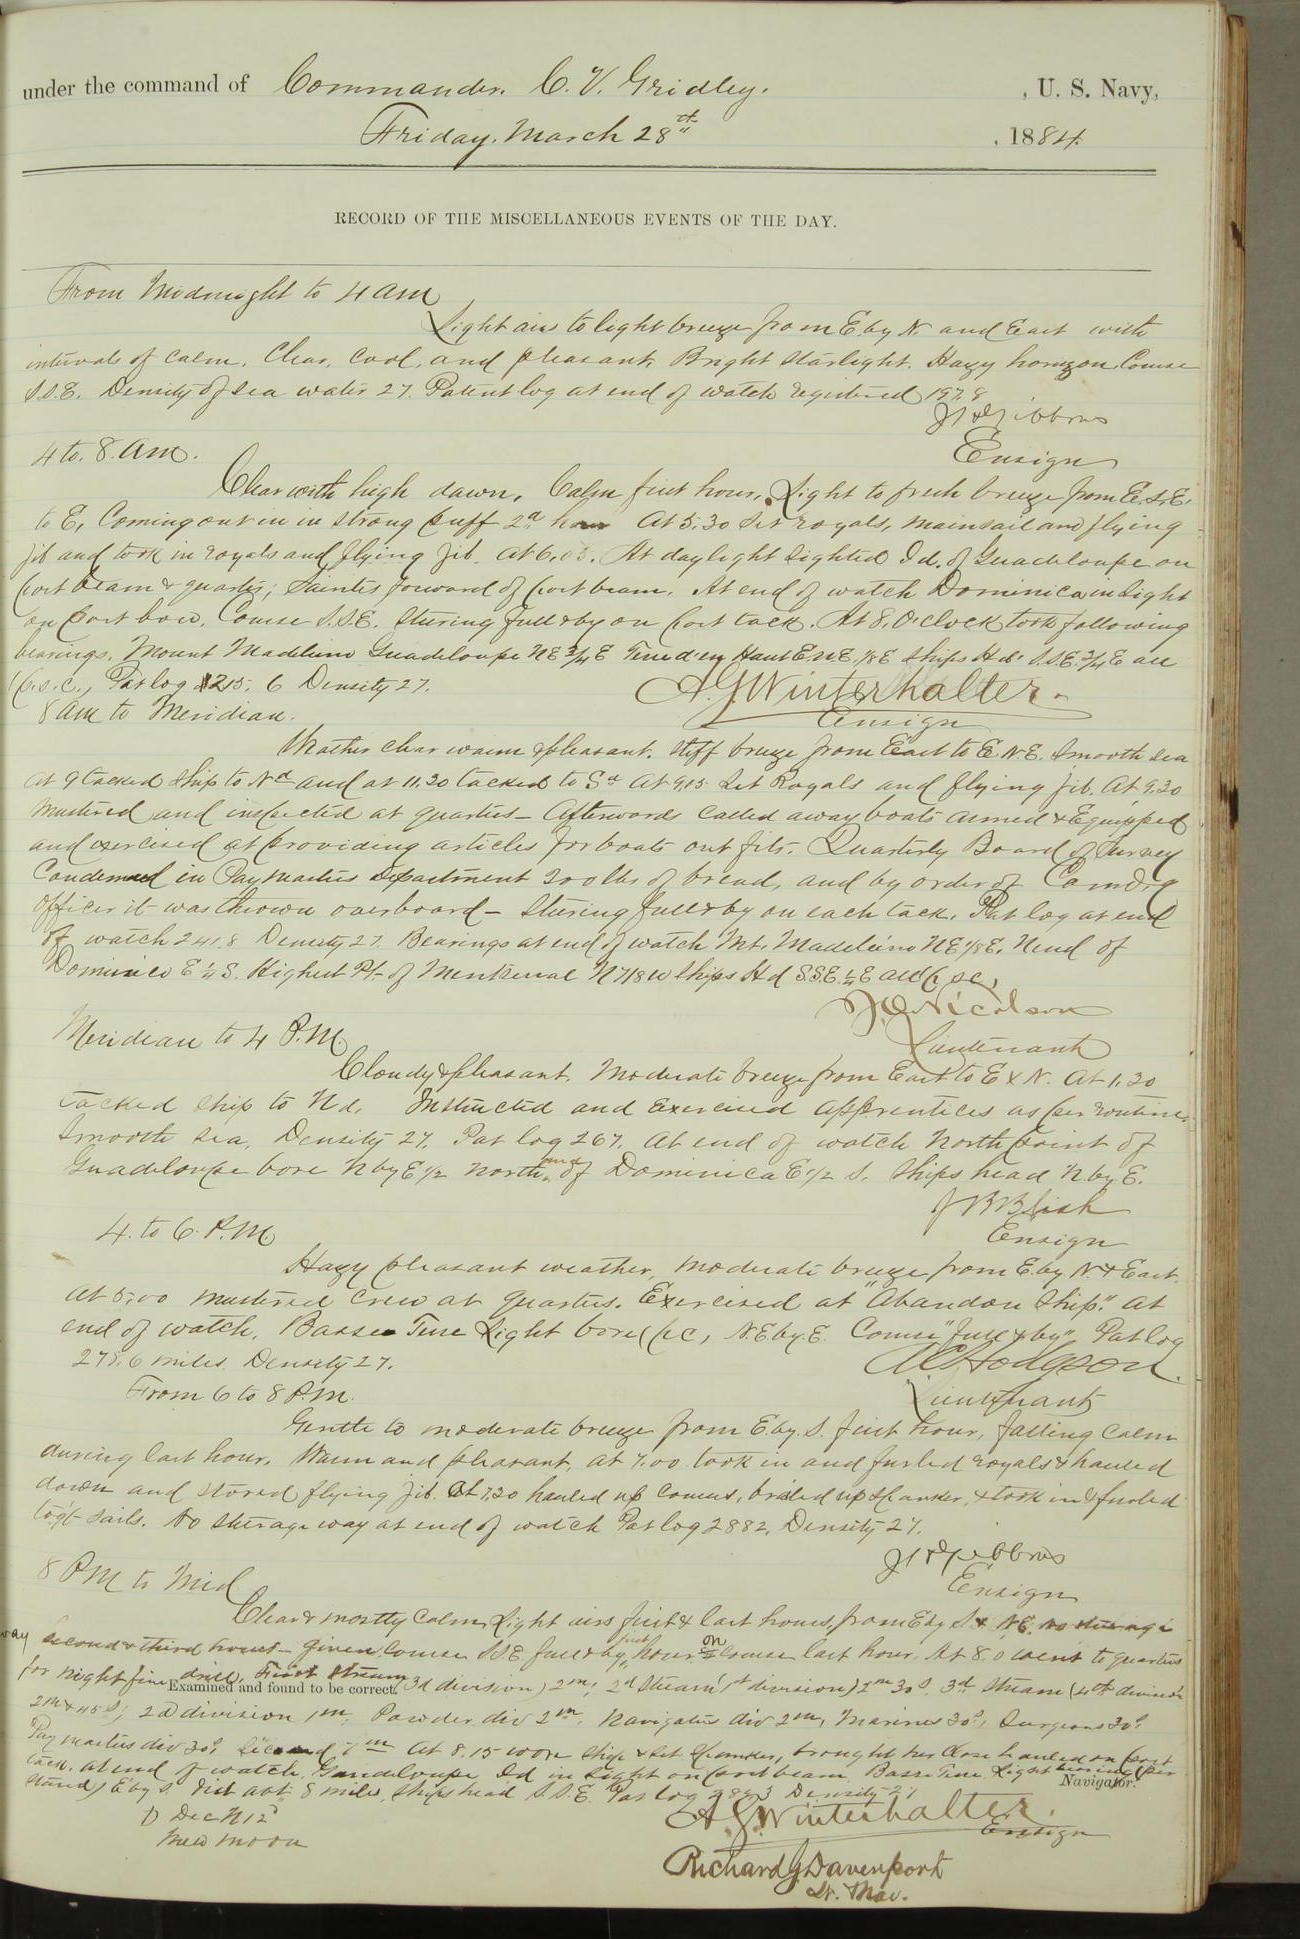 under the command of Commander. C. V. Gridley. , U. S. Navy,
Friday, March 28th , 1884.
RECORD OF THE MISCELLANEOUS EVENTS OF THE DAY.
From Midnight to 4 am
Light airs to light breeze from E. by N. and East with
intervals of calm. Clear, cool, and pleasant, Bright starlight. Hazy horizon Course
S.S.E. Density of sea water 27. Patent log at end of watch registered 197.8
J H Gibbons
Ensign
4 to. 8. am.
Clear with high dawn. Calm first hour, Light to fresh breeze from E.S.E.
to E, Coming out in in strong puff 2d hour At 5.30 set royals, mainsail and flying
jib and took in royals and flying jib. at 6.05. At daylight sighted Id. of Guadeloupe on
port beam & quarter; Saintes forward of port beam. At end of watch Dominica in sight
on port bow. Course S.S.E. Steering full & by on port tack. At 8. O'clock took following
bearings. Mount Madeline Guadeloupe NE 3/4 E Terre d'en Haut E.N.E. 1/8 E Ships Hd. S.S.E. 3/4 E all
(p.s.c., Pat log 215. 6 Density 27.
A. G. Winterhalter.
Ensign
8 am to Meridian.
Weather clear warm & pleasant. Stiff breeze from East to E.N.E. Smooth sea
At 9 tacked ship to Nd and at 11.20 tacked to Sd At 9.15 Set Royals and flying jib. At 9.30
mustered and inspected at quarters – Afterwards called away boats armed & Equipped
and exercised at providing articles for boats out fits. Quarterly Board of Survey
Condemned in Paymasters Department 200 lbs of bread, and by order of Comdg
officer it was thrown overboard – Steering full & by on each tack. Pat log at end
of watch 241.8 Density 27. Bearings at end of watch Mt. Madeleine NE 1/8 E. N end of
Dominica E S. Highest Pt. of Montserrat N 7/8 W Ships Hd S.S.E. E all p s c,
Nicolson
Lieutenant
Meridian to 4 P.M.
Cloudy & pleasant. Moderate breeze from East to E x N. At 1.30
tacked ship to Nd. Instructed and Exercised apprentices as per routine
Smooth sea. Density 27. Pat log 267. At end of watch North point of
Guadeloupe bore N by E 1/2 North end of Dominica E 1/2 S. Ships head N by E.
J B Blish
Ensign
4. to 6. P.M.
Hazy pleasant weather, moderate breeze from E. by N. & East.
At 5.00 mustered crew at quarters. Exercised at "Abandon Ship." At
end of watch, Basse Terre Light bore (pc, N.E. by. E. Course "full & by" Pat log
278.6 miles. Density 27.
A C Hodgson.
Lieutenant
From 6 to 8 P.M.
Gentle to moderate breeze from E by. S. first hour, falling calm
during last hour. Warm and pleasant. At 7.00 took in and furled royals & hauled
down and stowed flying jib. At 7.30 hauled up courses, brailed up spanker, & took in & furled
to'g't sails. No steerage way at end of watch Pat log 288.2, Density 27.
J H Gibbons
Ensign
8 P.M to Mid
Clear & mostly calm, Light airs first & last hours, from E by S & N.E. no steerage
way second & third hours – given course S.S.E. full & by first hour on course last hour. At 8. 0 went to quarters
for night fire drill, First Stream 3d division) 2m; 2d Stream (1st division) 2m 30s. 3d Stream (4th division
Examined and found to be correct.
2m & 45s; 2d division 1m, Powder div 2m. Navigators div 2m, Marines 30s, Surgeons 30s
Paymasters div 30s. Secured 7m At 8.15 wore ship & set Spanker, brought her close hauled on port
tack. at end of watch. Guadeloupe Id in sight on port beam Basse Terre Light bearing (per
stand) E by S. Dist abt 8 miles, Ships head S.S.E. Pat log 289.3 Density 27
Navigator.
D Dec N 12°
New moon
A. G. Winterhalter.
Ensign
Richard G. Davenport
Lt. Nav.